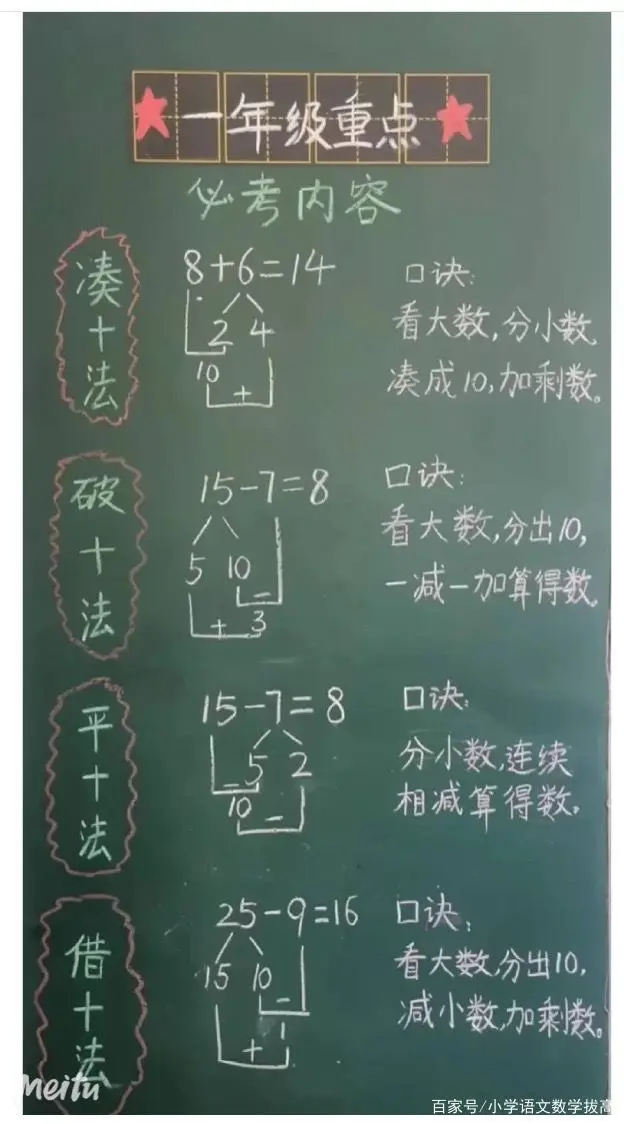 一年级重点
必考内容
凑十法
8+6=14
2 4
10
+
口诀:
看大数,分小数,
凑成10,加剩数。
破十法
15-7=8
5 10
-
+ 3
口诀:
看大数,分出10,
一减一加算得数。
平十法
15-7=8
- 5 2
10 -
口诀:
分小数,连续
相减算得数。
借十法
25-9=16
15 10
-
1
+
口诀:
看大数,分出10,
减小数,加剩数。
Meitu
百家号/小学语文数学拔高